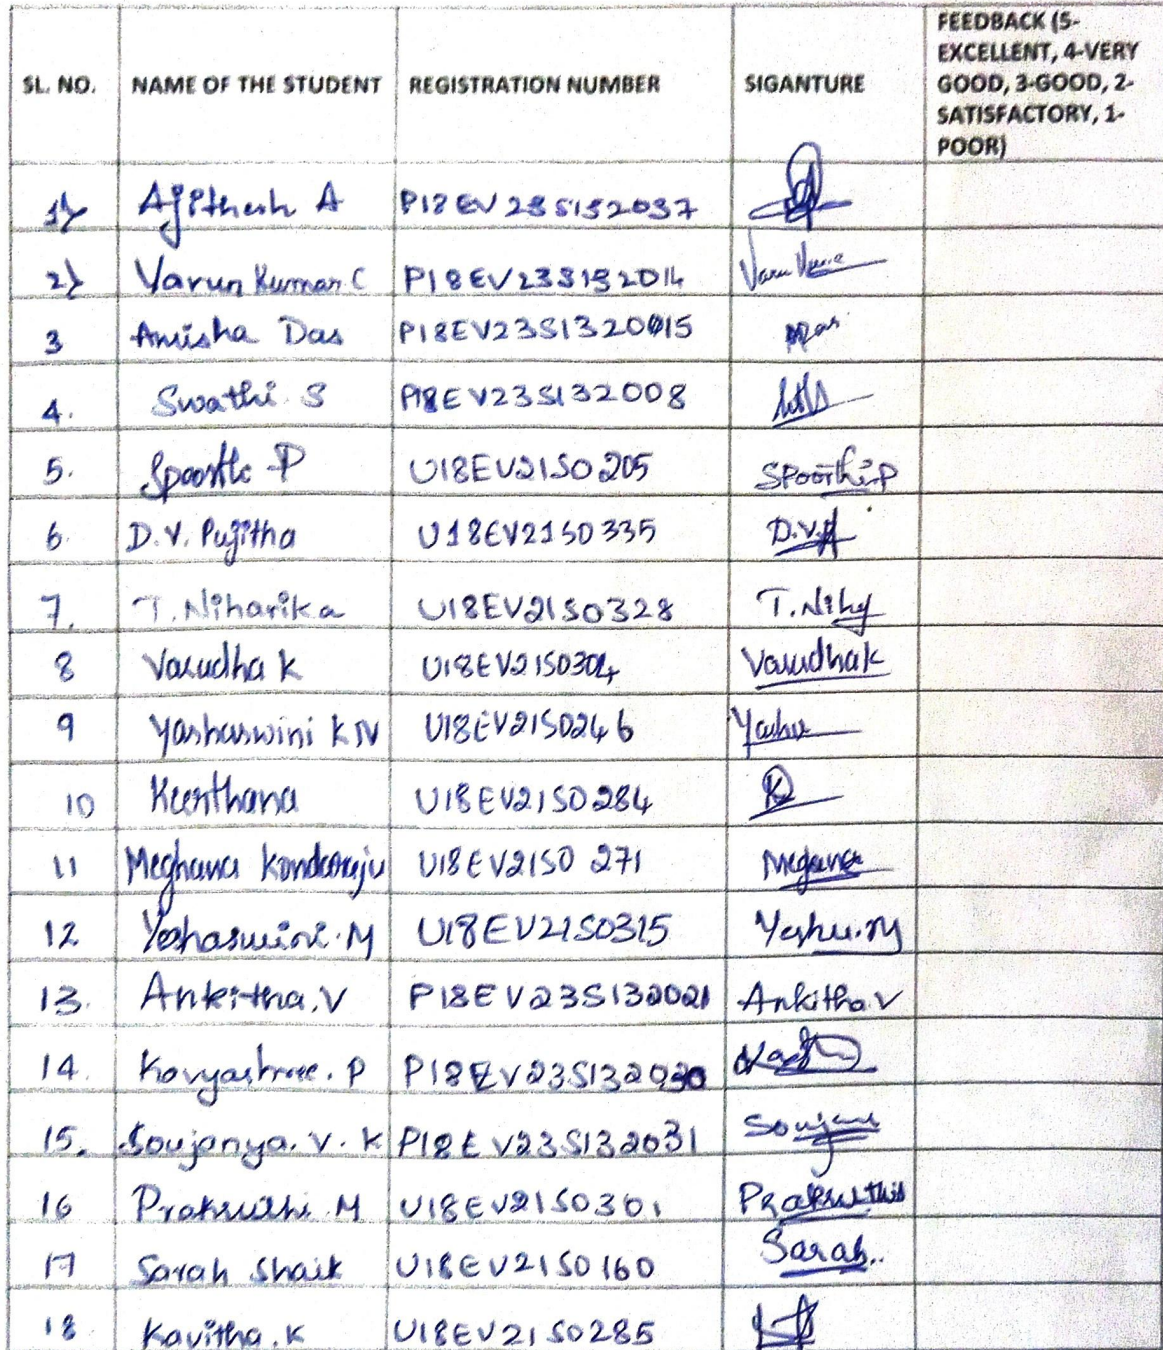 SL. NO. NAME OF THE STUDENT REGISTRATION NUMBER SIGANTURE FEEDBACK (5-
EXCELLENT, 4-VERY
GOOD, 3-GOOD, 2-
SATISFACTORY, 1-
POOR)
1) Ajithesh A P18EV23S132037
2) Varun Kumar C P18EV23S132014 Varun
3 Anisha Das P18EV23S1320015
4. Swathi S P18EV23S132008
5. Spoorthi P U18EV21S0205 Spoorthi.P
6. D.V. Pujitha U18EV21S0335 D.V.P
7. T. Niharika U18EV21S0328 T.Nihy
8 Varudha K U18EV21S0304 Varudhak
9 Yashaswini K N U18EV21S0246 Yashu
10 Keerthana U18EV21S0284
11 Meghana Kondaraju U18EV21S0271 Megana
12 Yashaswini.M U18EV21S0315 Yashu.M
13. Ankitha.V P18EV23S132021 Ankitha.V
14. Kavyashree. P P18EV23S132030
15. Soujanya. V. K P18EV23S132031 Soujany
16 Prakruthi M U18EV21S0301 Prakruthi
17 Sarah Shaik U18EV21S0160 Sarah..
18 Kavitha.K U18EV21S0285